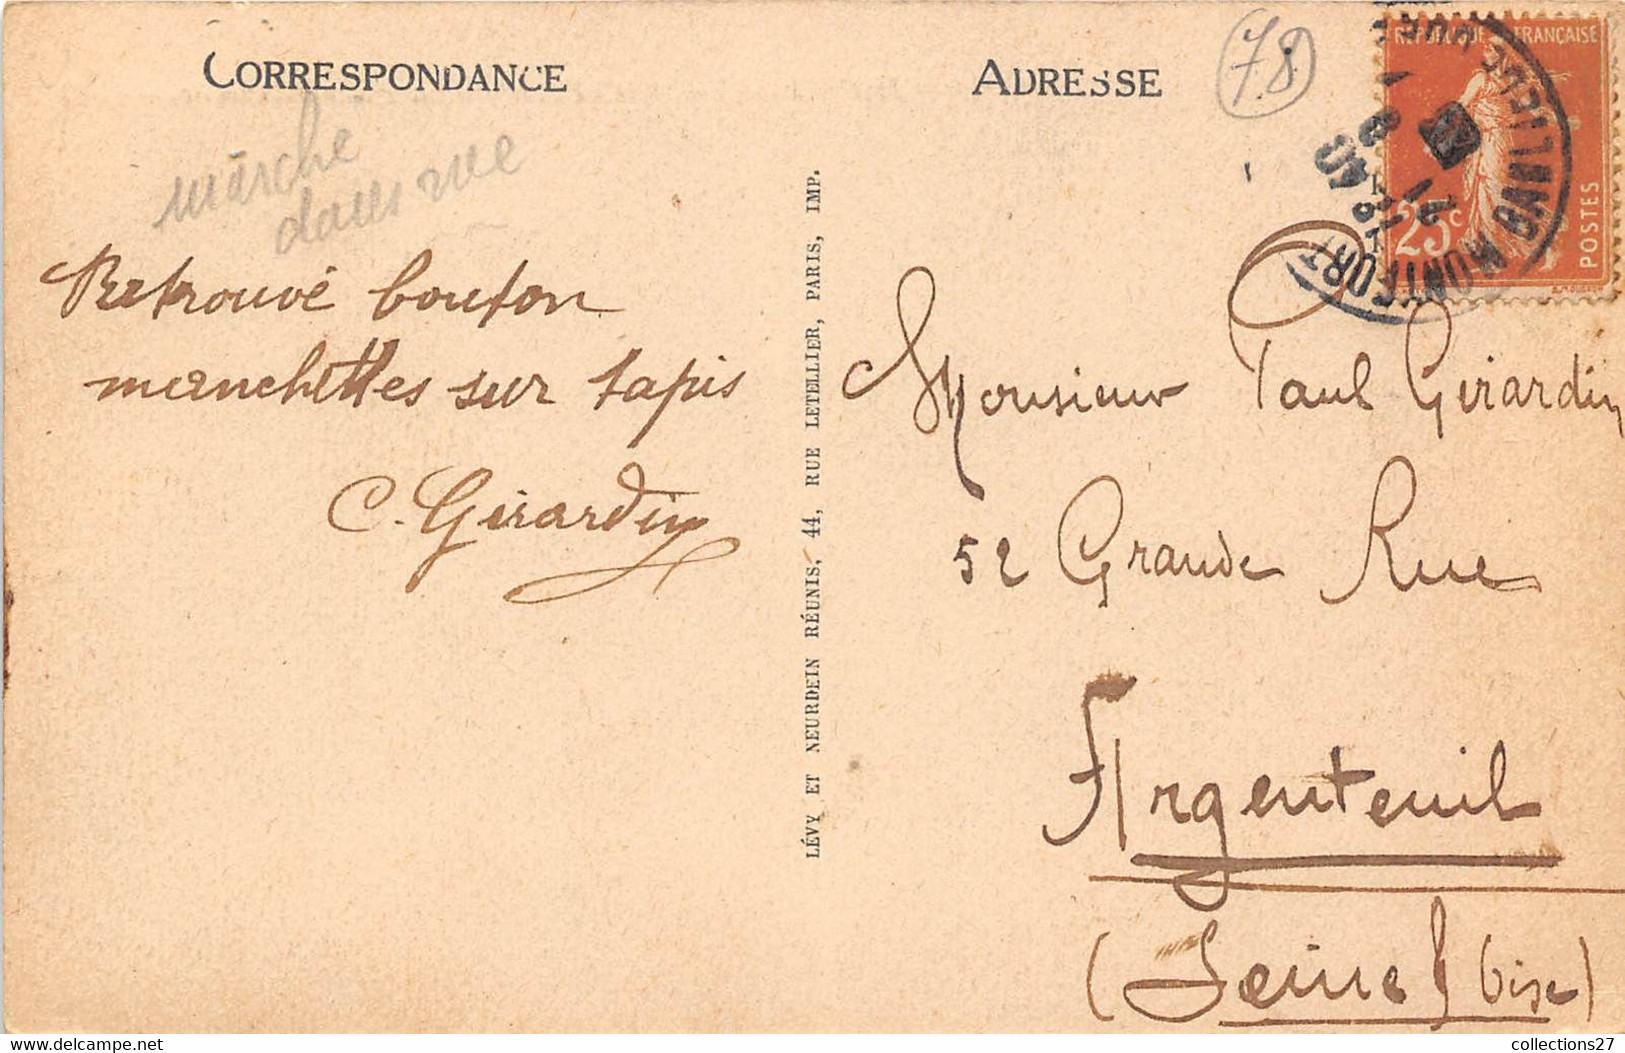 CORRESPONDANCE
marché
dans rue
Retrouvé bouton
manchettes sur tapis
C. Girardin
LÉVY ET NEURDEIN RÉUNIS, 44, RUE LETELLIER, PARIS, IMP.
ADRESSE
78
REPUBLIQUE FRANÇAISE
25c
POSTES
Monsieur Paul Girardin
52 Grande Rue
Argenteuil
(Seine & Oise)
collections27